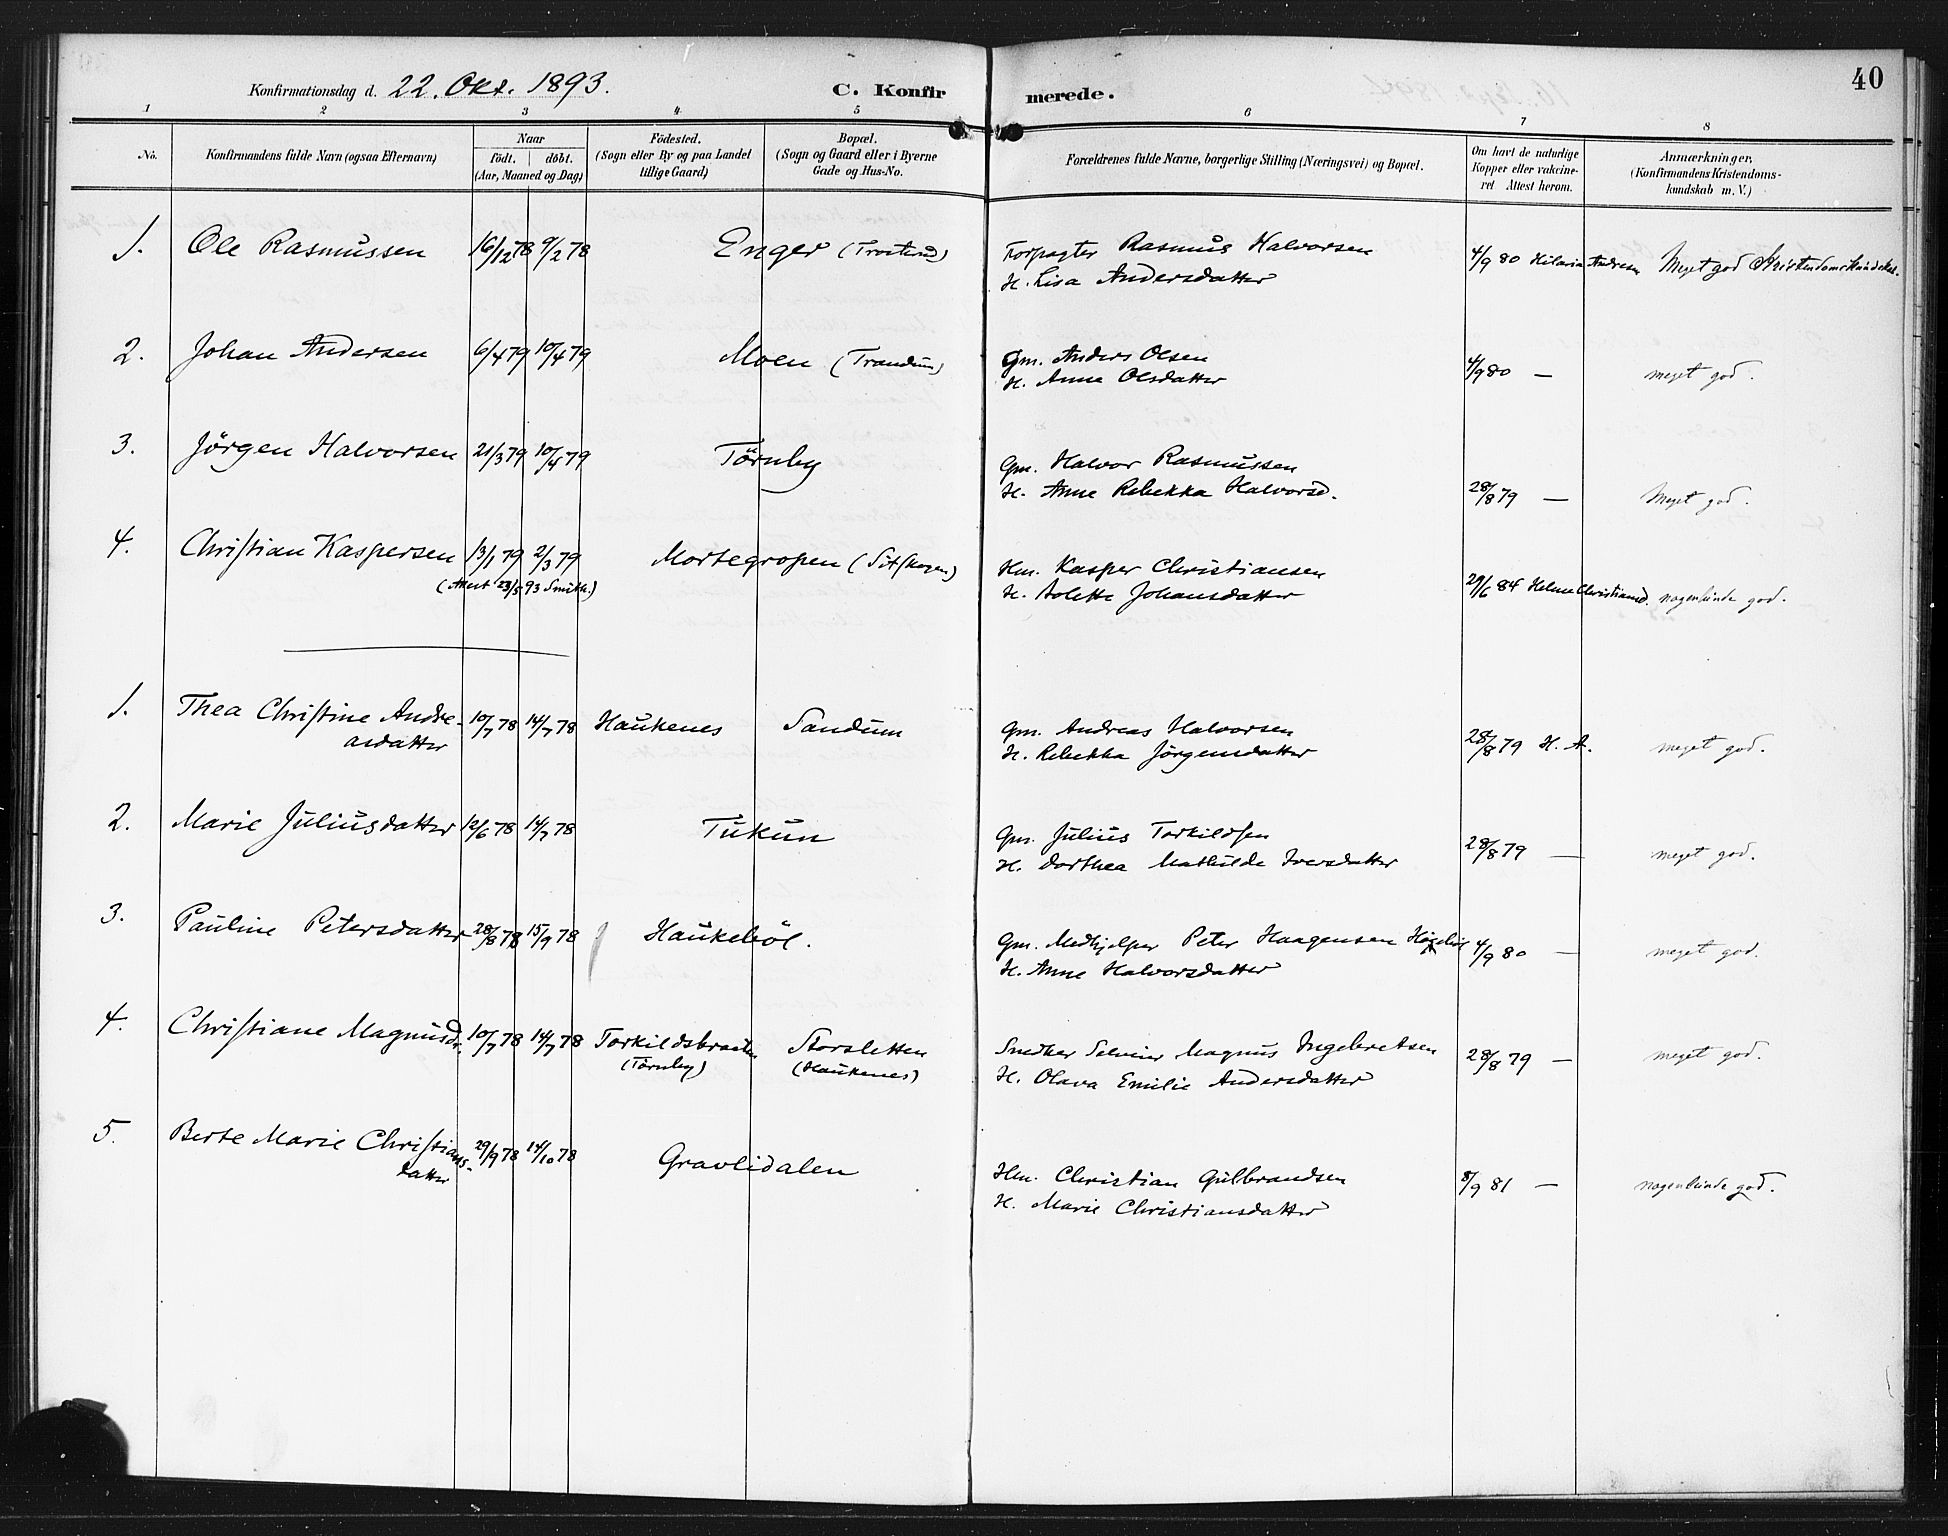 Konfirmationsdag d. 22. Okt. 1893. C. Konfirmerede. 40
1 2 3 4 5 6 7 8
No. Konfirmandens fulde Navn (ogsaa Efternavn) Naar födt. döbt. (Aar, Maaned og Dag) Födested. (Sogn eller By og paa Landet tillige Gaard) Bopæl. (Sogn og Gaard eller i Byerne Gade og Hus-No. Forældrenes fulde Navne, borgerlige Stilling (Næringsvei) og Bopæl. Om havt de naturlige Kopper eller vakcineret Attest herom. Anmærkninger. (Konfirmandens Kristendomskundskab m. V.)
1. Ole Rasmussen 16/12 78 9/2 78 Enger (Trostrud) Forpagter Rasmus Halvorsen 4/9 80 Hilaria Andresen Meget god Kristendomskundskab.
H. Lisa Andersdatter
2. Johan Andersen 6/4 79 10/4 79 Moen (Trandum) Gm. Anders Olsen 4/9 80 — meget god.
H. Anne Olsdatter
3. Jörgen Halvorsen 21/3 79 10/4 79 Törnby Gm. Halvor Rasmussen
H. Anne Rebekka Halvorsd. 28/8 79 — Meget god.
4. Christian Kaspersen 13/1 79 2/3 79 Mortegropen (Sitskogen) Hm. Kasper Christiansen
(Attest 23/5 93 Smith.) H. Bolette Johansdatter 29/6 84 Helene Christiansd. nogenlunde god.
1. Thea Christine Andre- 10/7 78 14/7 78 Haukenes Sandum Gm. Andreas Halvorsen
asdatter H. Rebekka Jörgensdatter 28/8 79 H. A. meget god.
2. Marie Juliusdatter 12/6 78 14/7 78 Tukun Gm. Julius Torkildsen
H. Dorthea Mathilde Iversdatter 28/8 79 — meget god.
3. Pauline Petersdatter 28/8 78 15/9 78 Haukeböl. Gm. Medhjelper Peter Haagensen
H. Anne Halvorsdatter 4/9 80 — meget god.
4. Christiane Magnusd. 10/7 78 14/7 78 Torkildsbraaten Storsletten Snedker Severin Magnus Ingebretsen
(Törnby) (Haukenes) H. Olava Emilie Andersdatter 28/8 79 — meget god.
5. Berte Marie Christians- 29/9 78 14/10 78 Gravlidalen Hm. Christian Gulbrandsen 8/9 81 — nogenlunde god.
datter H. Marie Christiansdatter